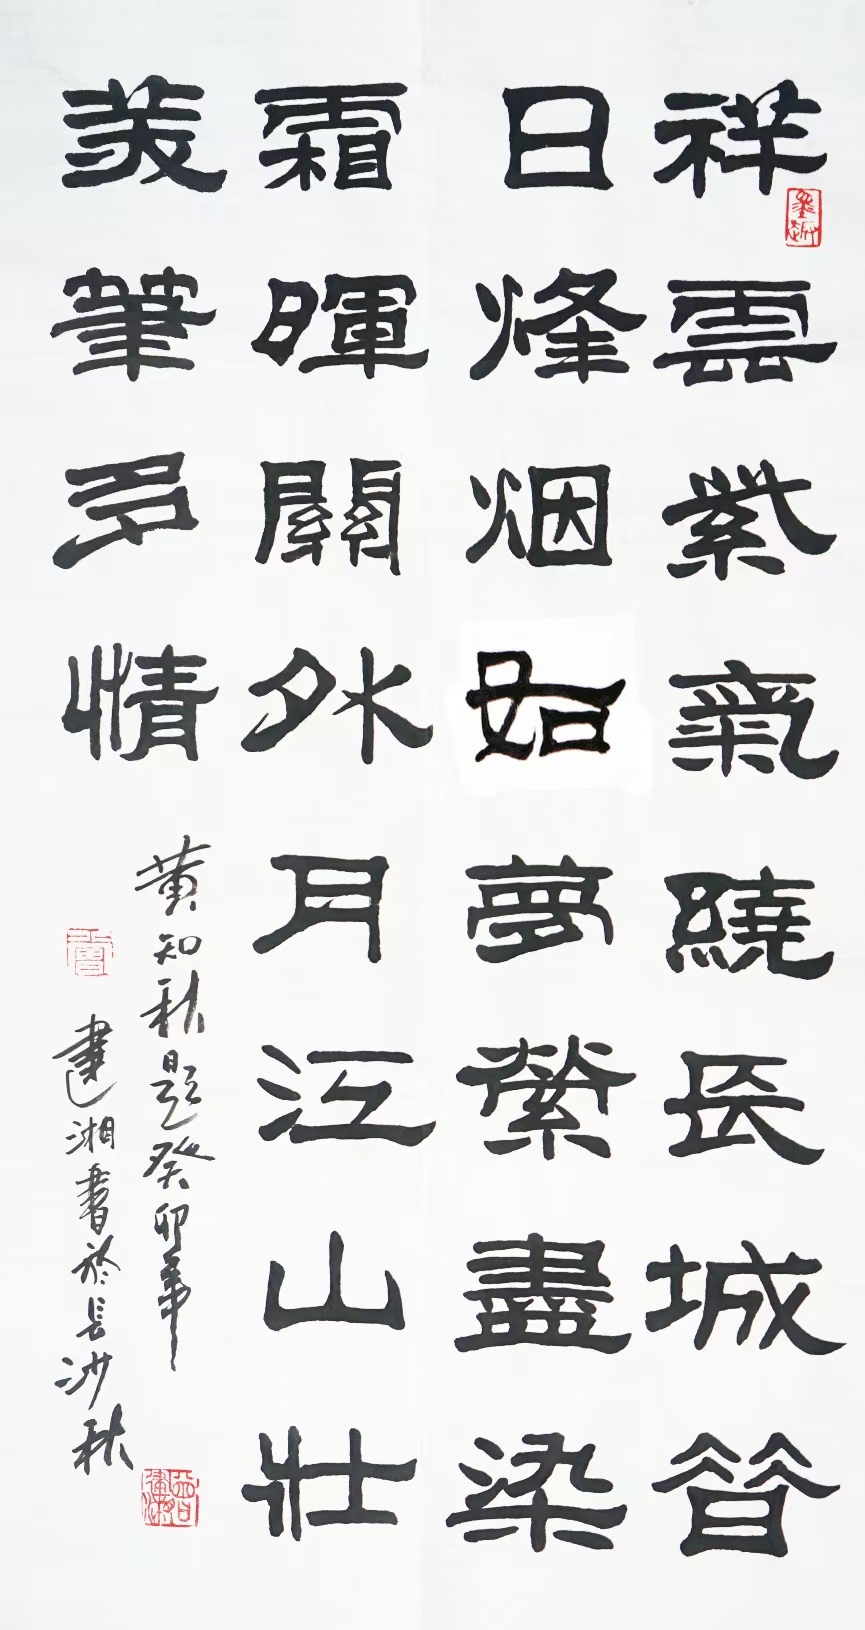 祥雲紫氣繞長城昔
日烽烟如夢縈盡染
霜暉關外月江山壯
美筆多情
黄知秋題癸卯年
建湘書於長沙秋